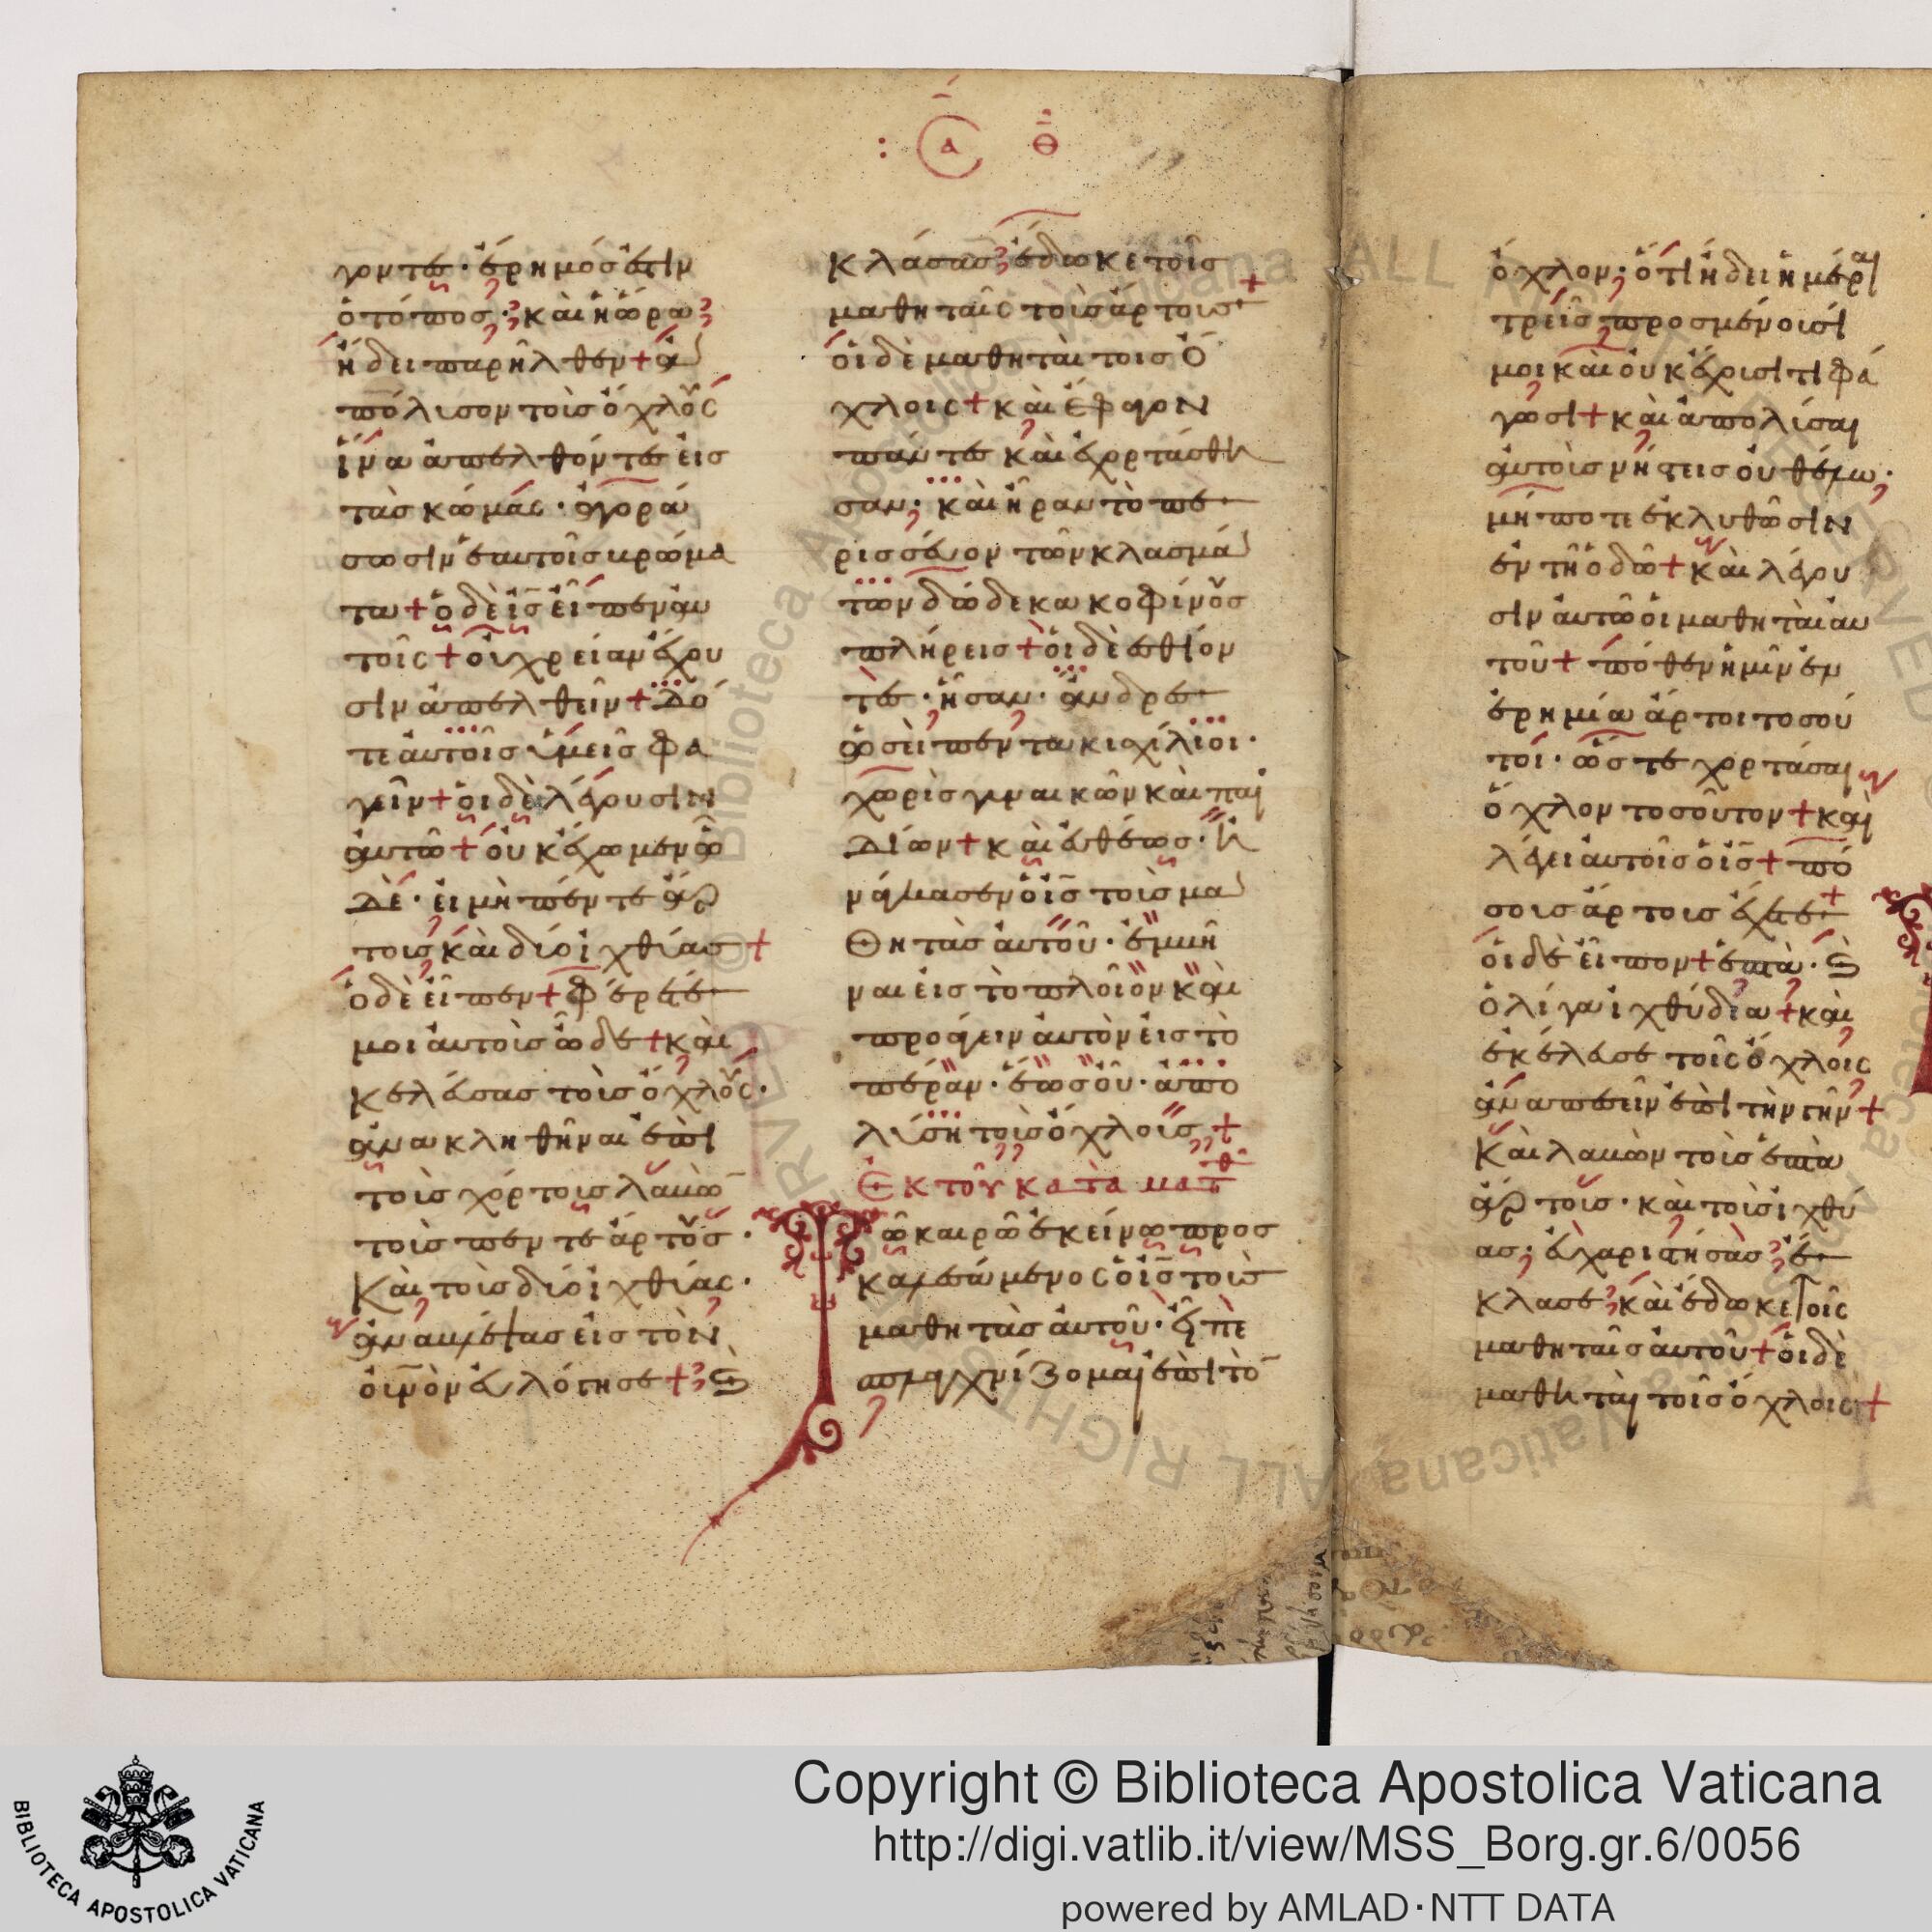 : Ⲥ Α Θ
γοντες· ἔρημός ἐστιν
ὁ τόπος· καὶ ἡ ὥρα
ἤδη παρῆλθεν + ἀ
πόλυσον τοὺς ὄχλους
ἵνα ἀπελθόντες εἰς
τὰς κώμας· ἀγορά
σωσιν ἑαυτοῖς βρώμα
τα + ὁ δὲ ις εἶπεν αὐ
τοῖς + οὐ χρείαν ἔχου
σιν ἀπελθεῖν + δό
τε αὐτοῖς ὑμεῖς φα
γεῖν + οἱ δὲ λέγουσιν
αὐτῷ + οὐκ ἔχωμεν ὧ
δὲ· εἰ μὴ πέντε ἄρ
τοις καὶ δύο ἰχθύας +
ὁ δὲ εἶπεν + φέρετέ
μοι αὐτοὺς ὧδε + καὶ
κελεύσας τοὺς ὄχλους·
ἀνακληθῆναι ἐπὶ
τοὺς χόρτους λαβὼ
τοὺς πέντε ἄρτους·
καὶ τοὺς δύο ἰχθύας·
ἀναβλέψας εἰς τὸν
οὐνὸν εὐλόγησε + καὶ
κλάσας ἔδωκε τοῖς
μαθηταῖς τοὺς ἄρτους +
οἱ δὲ μαθηταὶ τοῖς ὄ
χλοις + καὶ ἔφαγον
πάντες καὶ ἐχορτάσθη
σαν· καὶ ἦραν τὸ πε
ρισσεῦον τῶν κλασμά
των δώδεκα κοφίνους
πλήρεις + οἱ δὲ ἐσθίον
τες· ἦσαν· ἄνδρες
ὡσεὶ πεντακιχίλιοι·
χωρὶς γυναικῶν καὶ παι
δίων + καὶ εὐθέως· ἠ
νάγκασεν ὁ ις τοὺς μα
θητὰς αὐτοῦ· ἐμβῆ
ναι εἰς τὸ πλοῖον καὶ
προάγειν αὐτὸν εἰς τὸ
πέραν· ἕως οὗ· ἀπο
λύσῃ τοὺς ὄχλους +
Ἐκ τοῦ κατὰ ματθ
Τῷ καιρῷ ἐκείνῳ προς
καλεσάμενος ὁ ις τοὺς
μαθητὰς αὐτοῦ· εἶπε
σπλαγχνίζομαι ἐπὶ τὸ
ὄχλον· ὅτι ἤδει ἡμέραι
τρεῖς προσμένουσί
μοι καὶ οὐκ ἔχουσι τι φά
γωσι + καὶ ἀπολῦσαι
αὐτοὺς νήστεις οὐ θέλω·
μήποτε ἐκλυθῶσιν
ἐν τῇ ὁδῷ + καὶ λέγου
σιν αὐτῷ οἱ μαθηταὶ αυ
τοῦ + πόθεν ἡμῖν ἐν
ἐρημίᾳ ἄρτοι τοσού
τοι· ὥστε χορτάσαι
ὄχλον τοσοῦτον + καὶ
λέγει αὐτοῖς ὁ ις + πό
σους ἄρτους ἔχετε +
οἱ δὲ εἶπον + ἑπτὰ· καὶ
ὀλίγα ἰχθύδια + καὶ
ἐκέλευσε τοῖς ὄχλοις
ἀναπεσεῖν ἐπὶ τὴν γῆν +
Καὶ λαβὼν τοὺς ἑπτὰ
ἄρτους· καὶ τοὺς ἰχθύ
ας· εὐχαριστήσας ἔ
κλασε· καὶ ἔδωκε τοῖς
μαθηταῖς αὐτοῦ + οἱ δὲ
μαθηταὶ τοῖς ὄχλοις +
BIBLIOTECA APOSTOLICA VATICANA
Copyright © Biblioteca Apostolica Vaticana
http://digi.vatlib.it/view/MSS_Borg.gr.6/0056
powered by AMLAD·NTT DATA